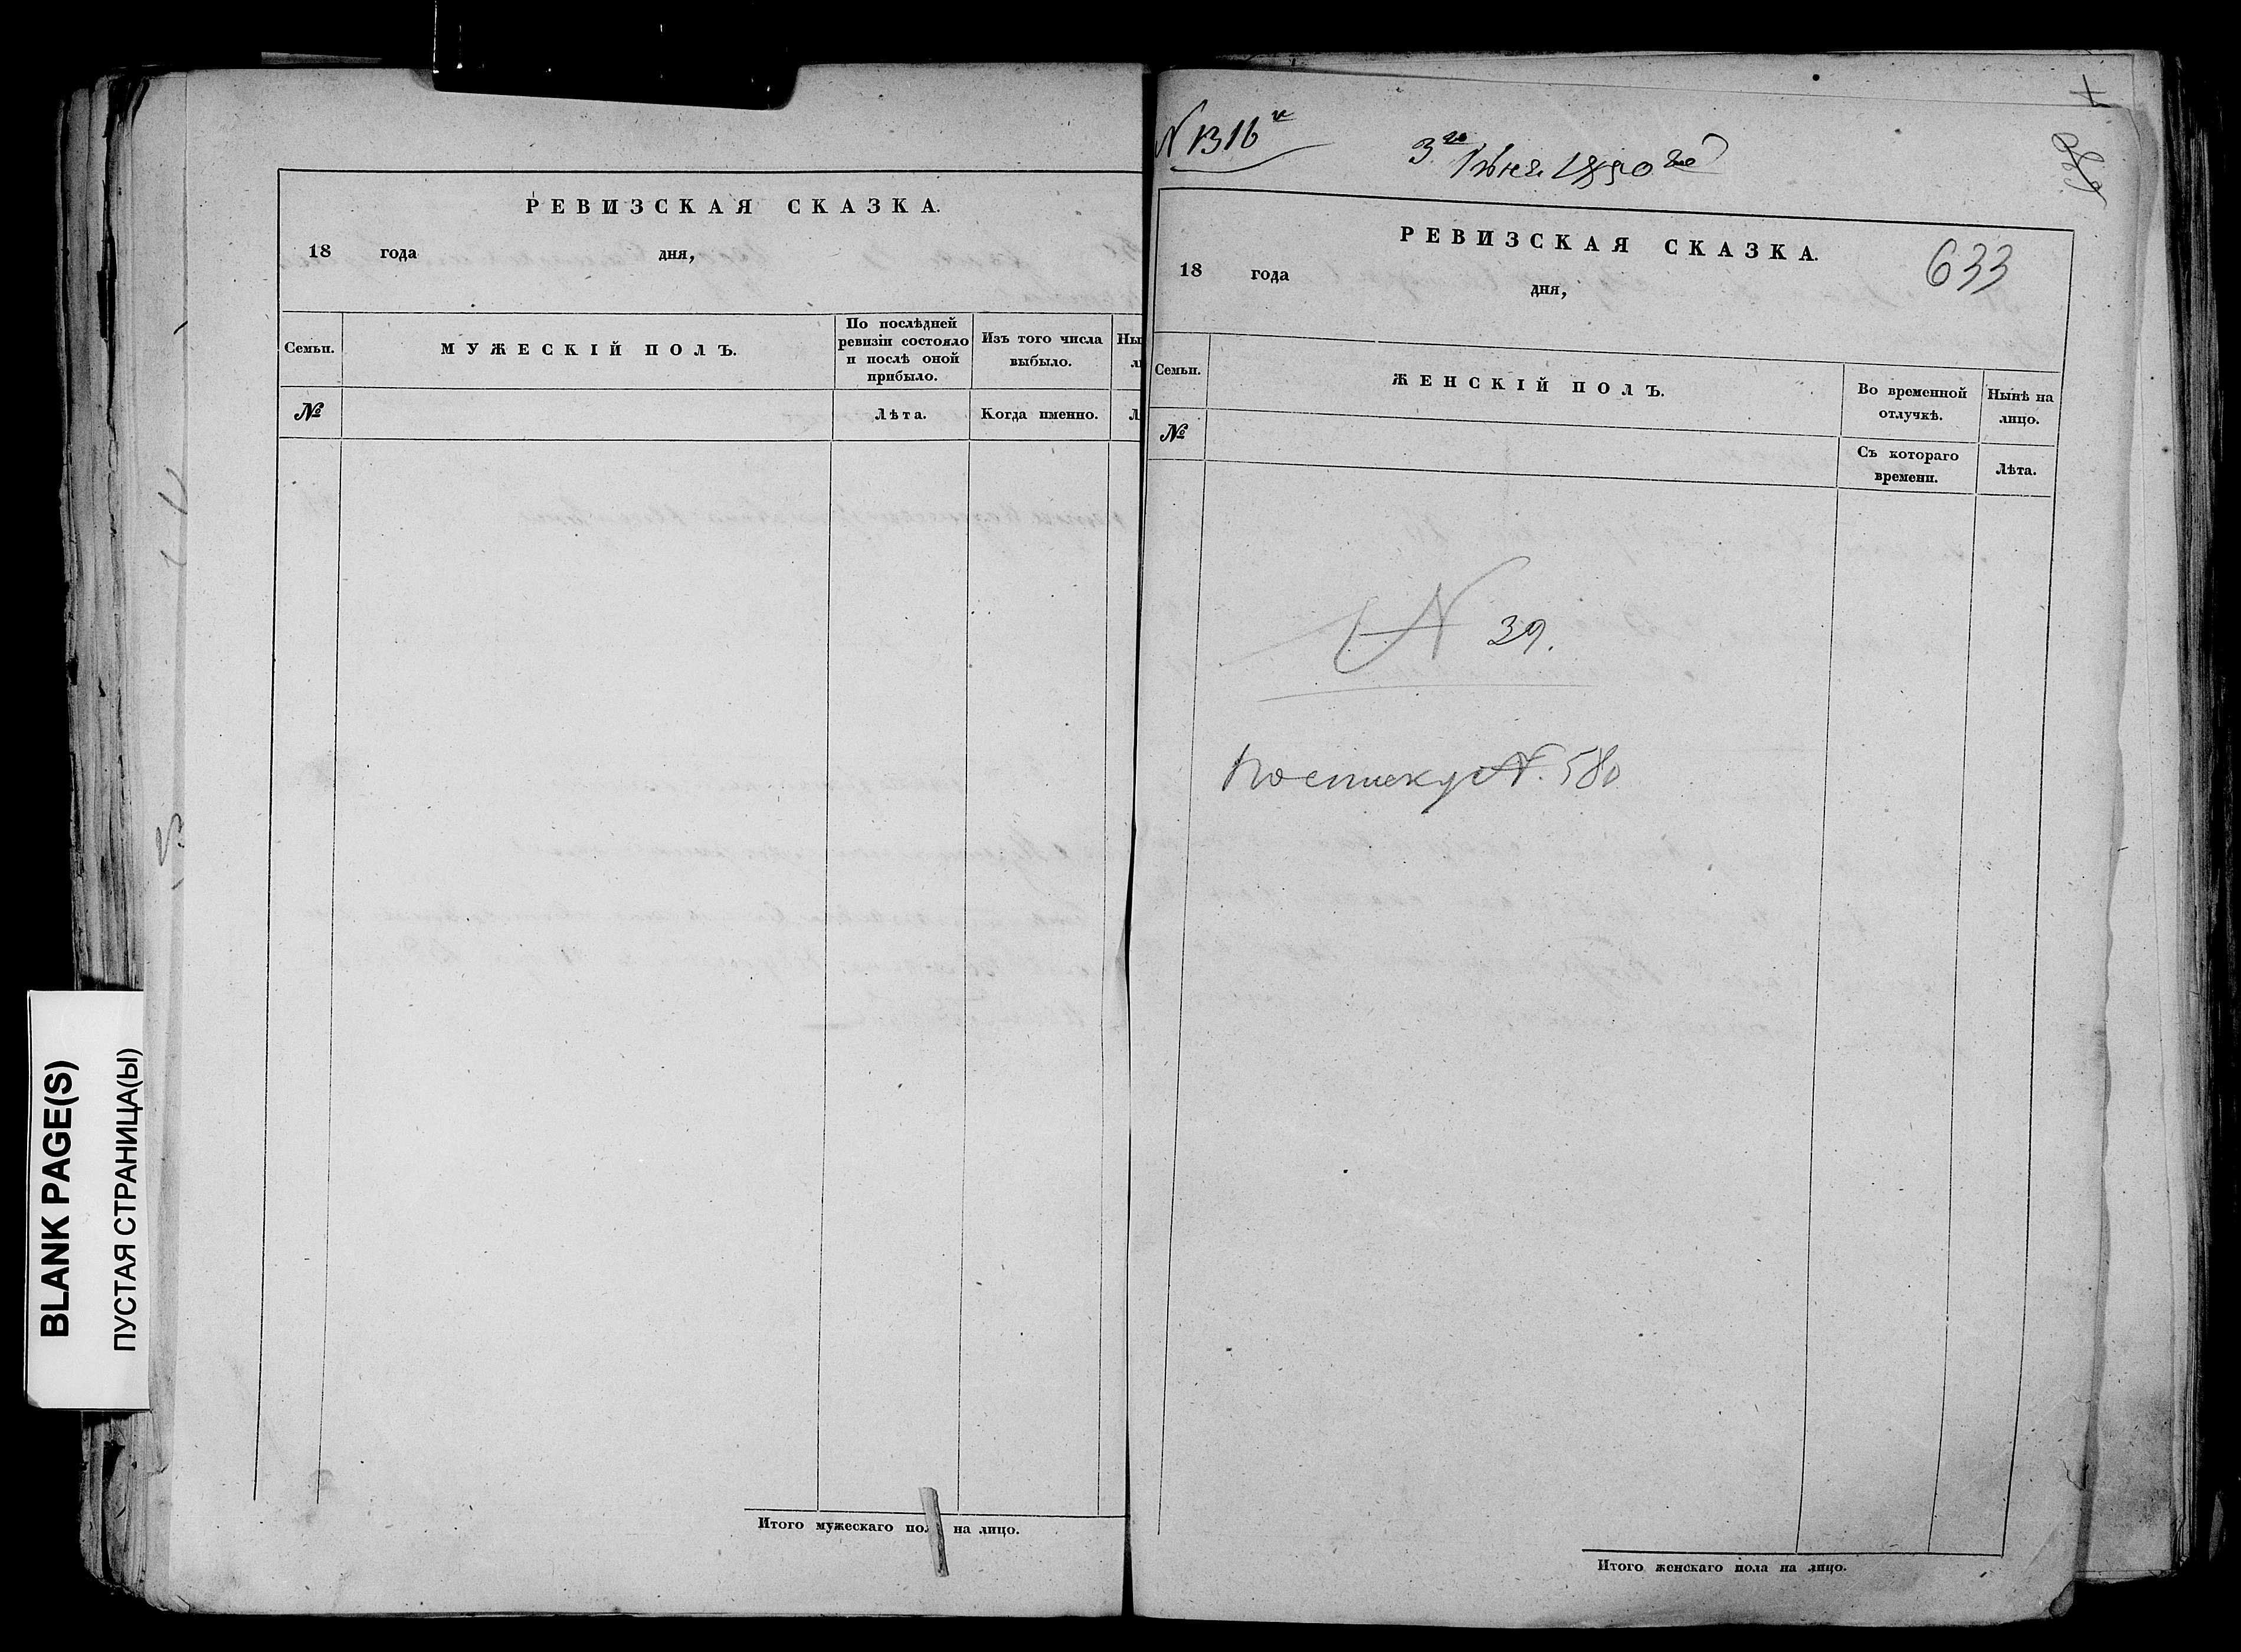 РЕВИЗСКАЯ СКАЗКА.
18 года дня,
Семьи. МУЖЕСКІЙ ПОЛЪ. По послѣдней ревизіи состояло и послѣ оной прибыло. Изъ того числа выбыло.
№ Лѣта. Когда именно.
Итого мужескаго пола на лицо.
N 1316
3го Іюня 1850 го
633
РЕВИЗСКАЯ СКАЗКА.
18 года дня,
Семьи. ЖЕНСКІЙ ПОЛЪ. Во временной отлучкѣ. Нынѣ на лицо.
№ Съ котораго времени. Лѣта.
N 39.
По списку N. 580
Итого женскаго пола на лицо.
BLANK PAGE(S)
ПУСТАЯ СТРАНИЦА(Ы)